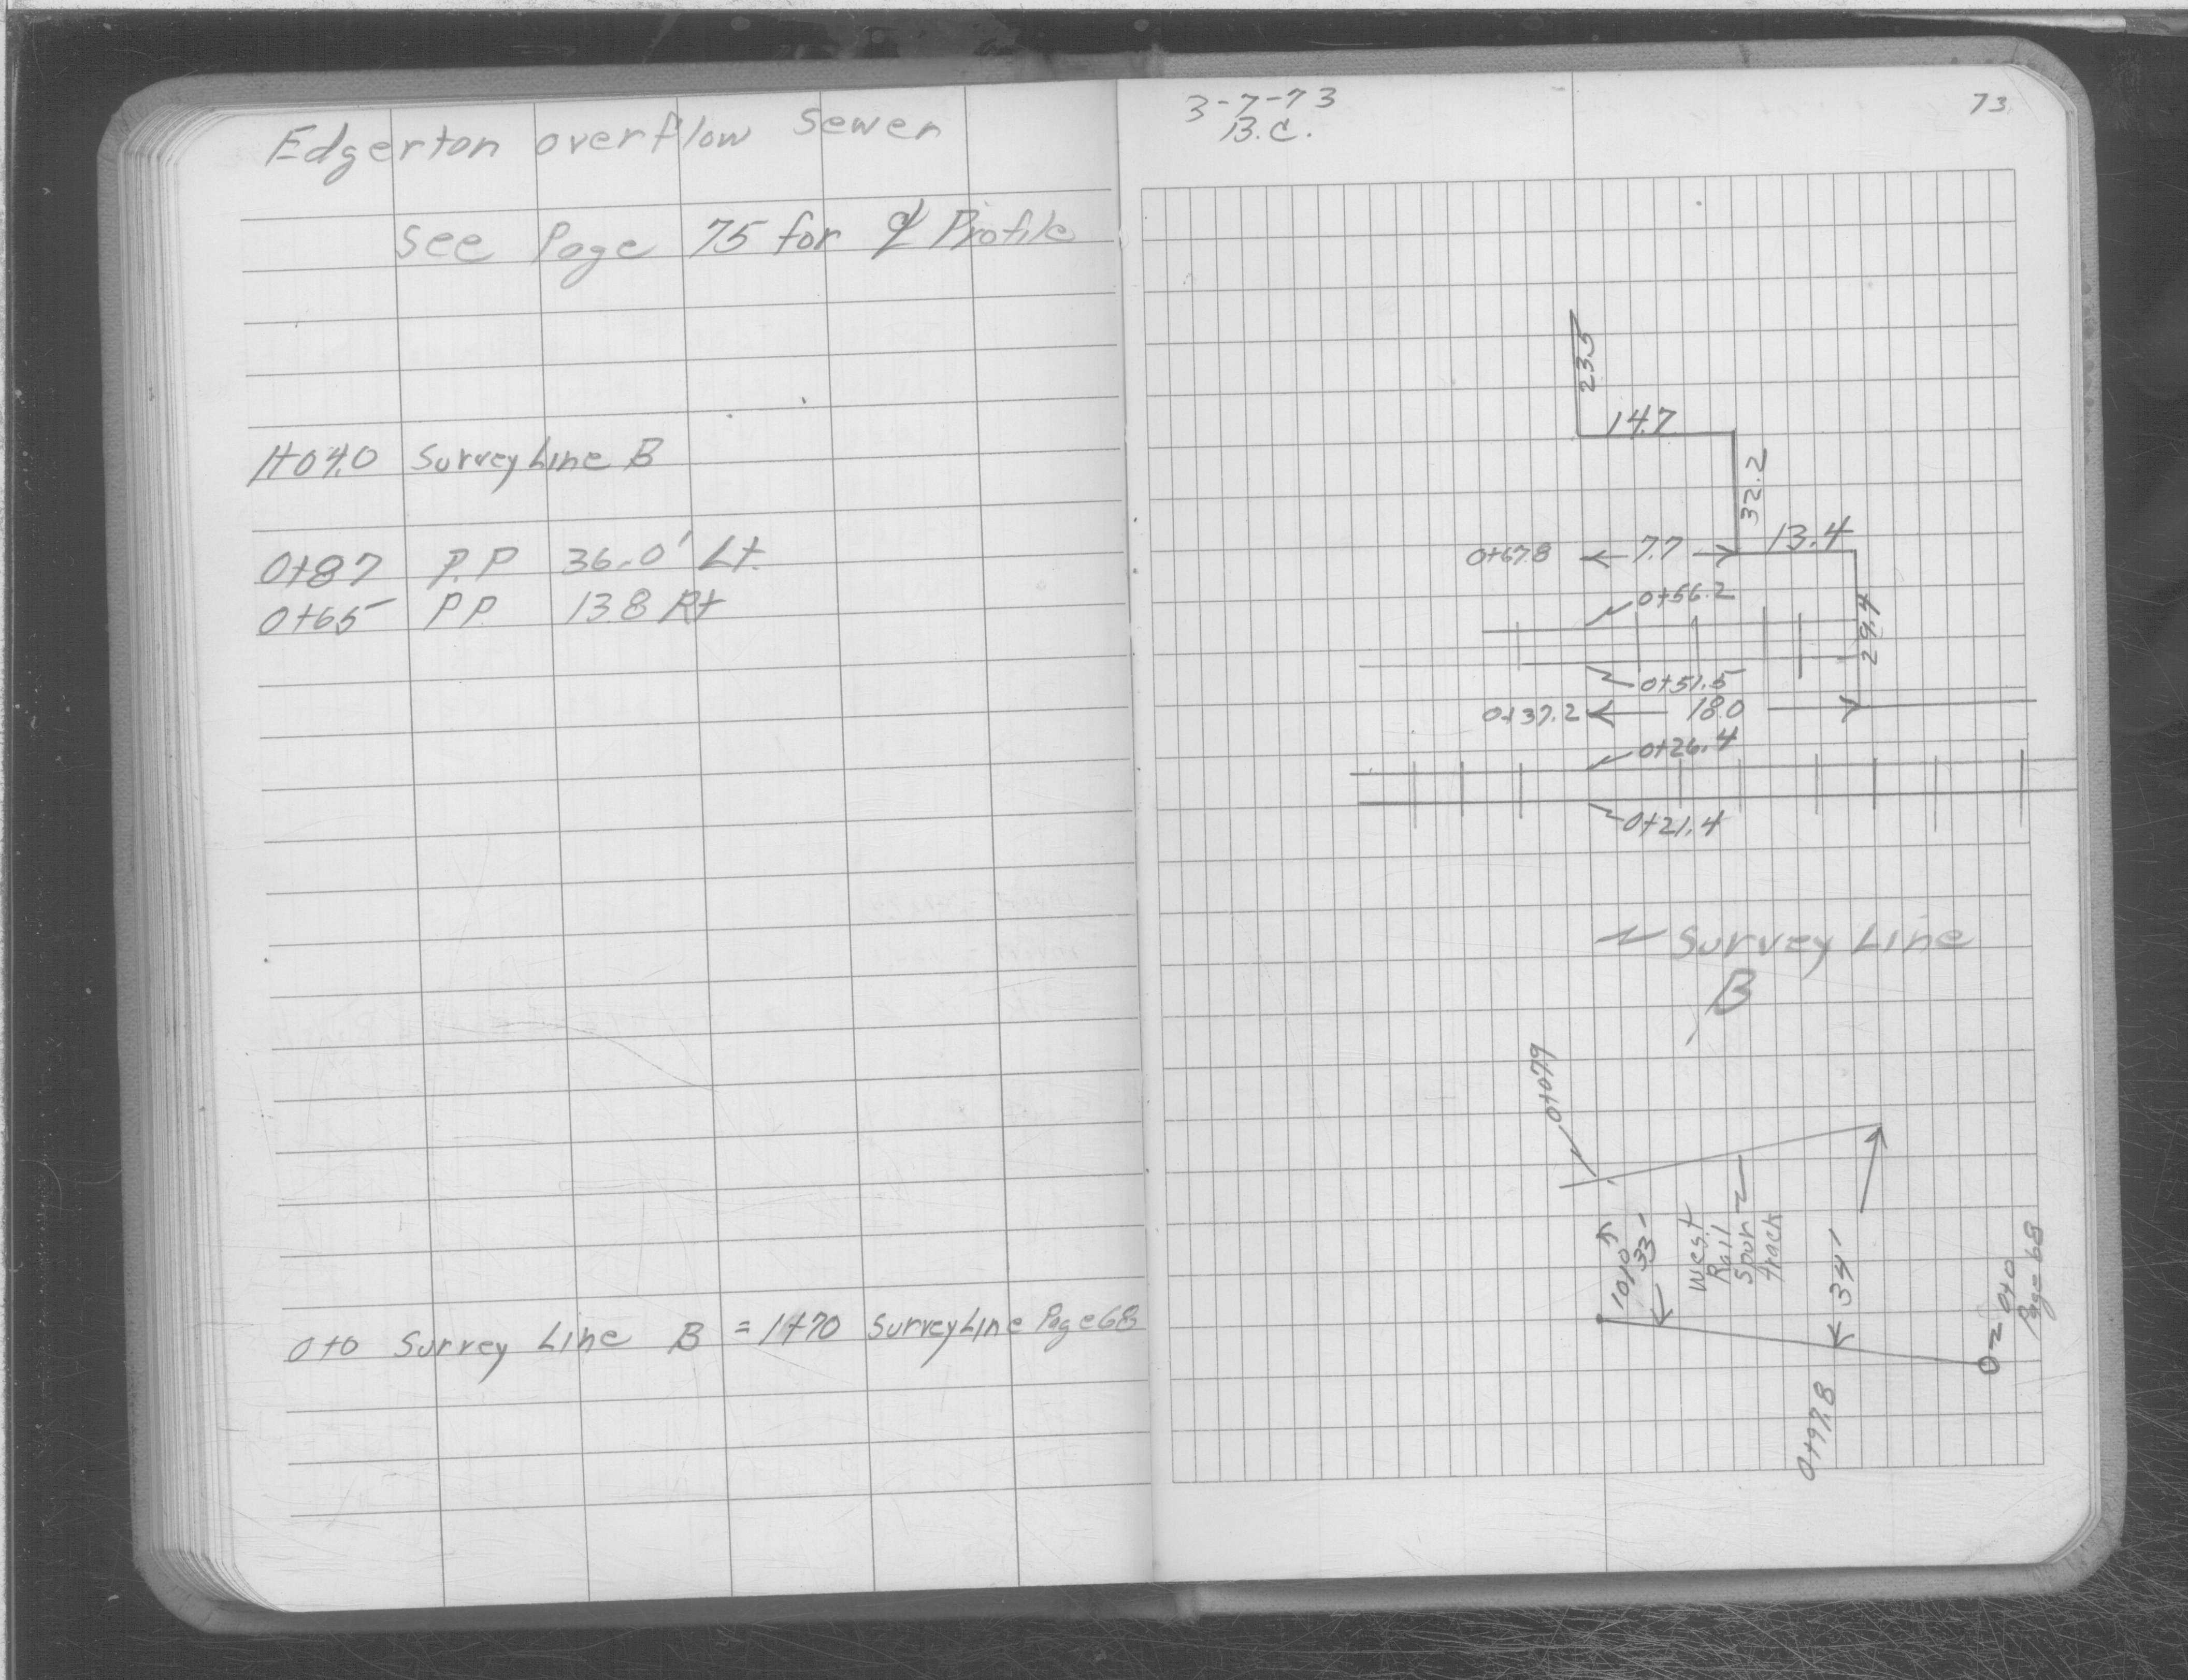 Edgerton overflow Sewer
See Page 75 for ℄ Profile
1+04.0 Survey Line B
0+87 P.P 36.0' Lt.
0+65 PP 13.8 Rt
0+0 Survey Line B = 1+70 Survey Line Page 68
3-7-73
B.C.
73
23.5
14.7
32.2
0+67.8 7.7 13.4
0+56.2
29.4
0+51.5
0+37.2 18.0
0+26.4
0+21.4
Survey Line
B
0+079
33'
West
Rail
Spur
track
34'
0+0
Page 68
0+97.8